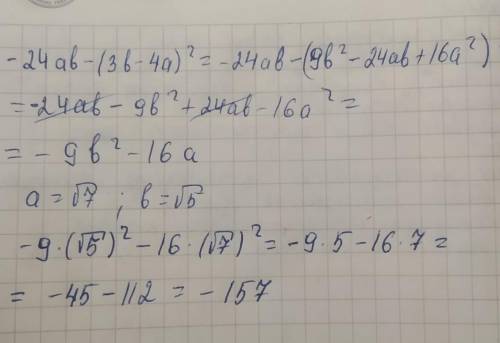 -24ab-(3b-4a)²=-24ab-(9b²-24ab+16a²)
=-24ab-9b²+24ab-16a²=
=-9b²-16a
a=√7; b=√5
-9·(√5)²-16·(√7)²=-9·5-16·7=
=-45-112=-157